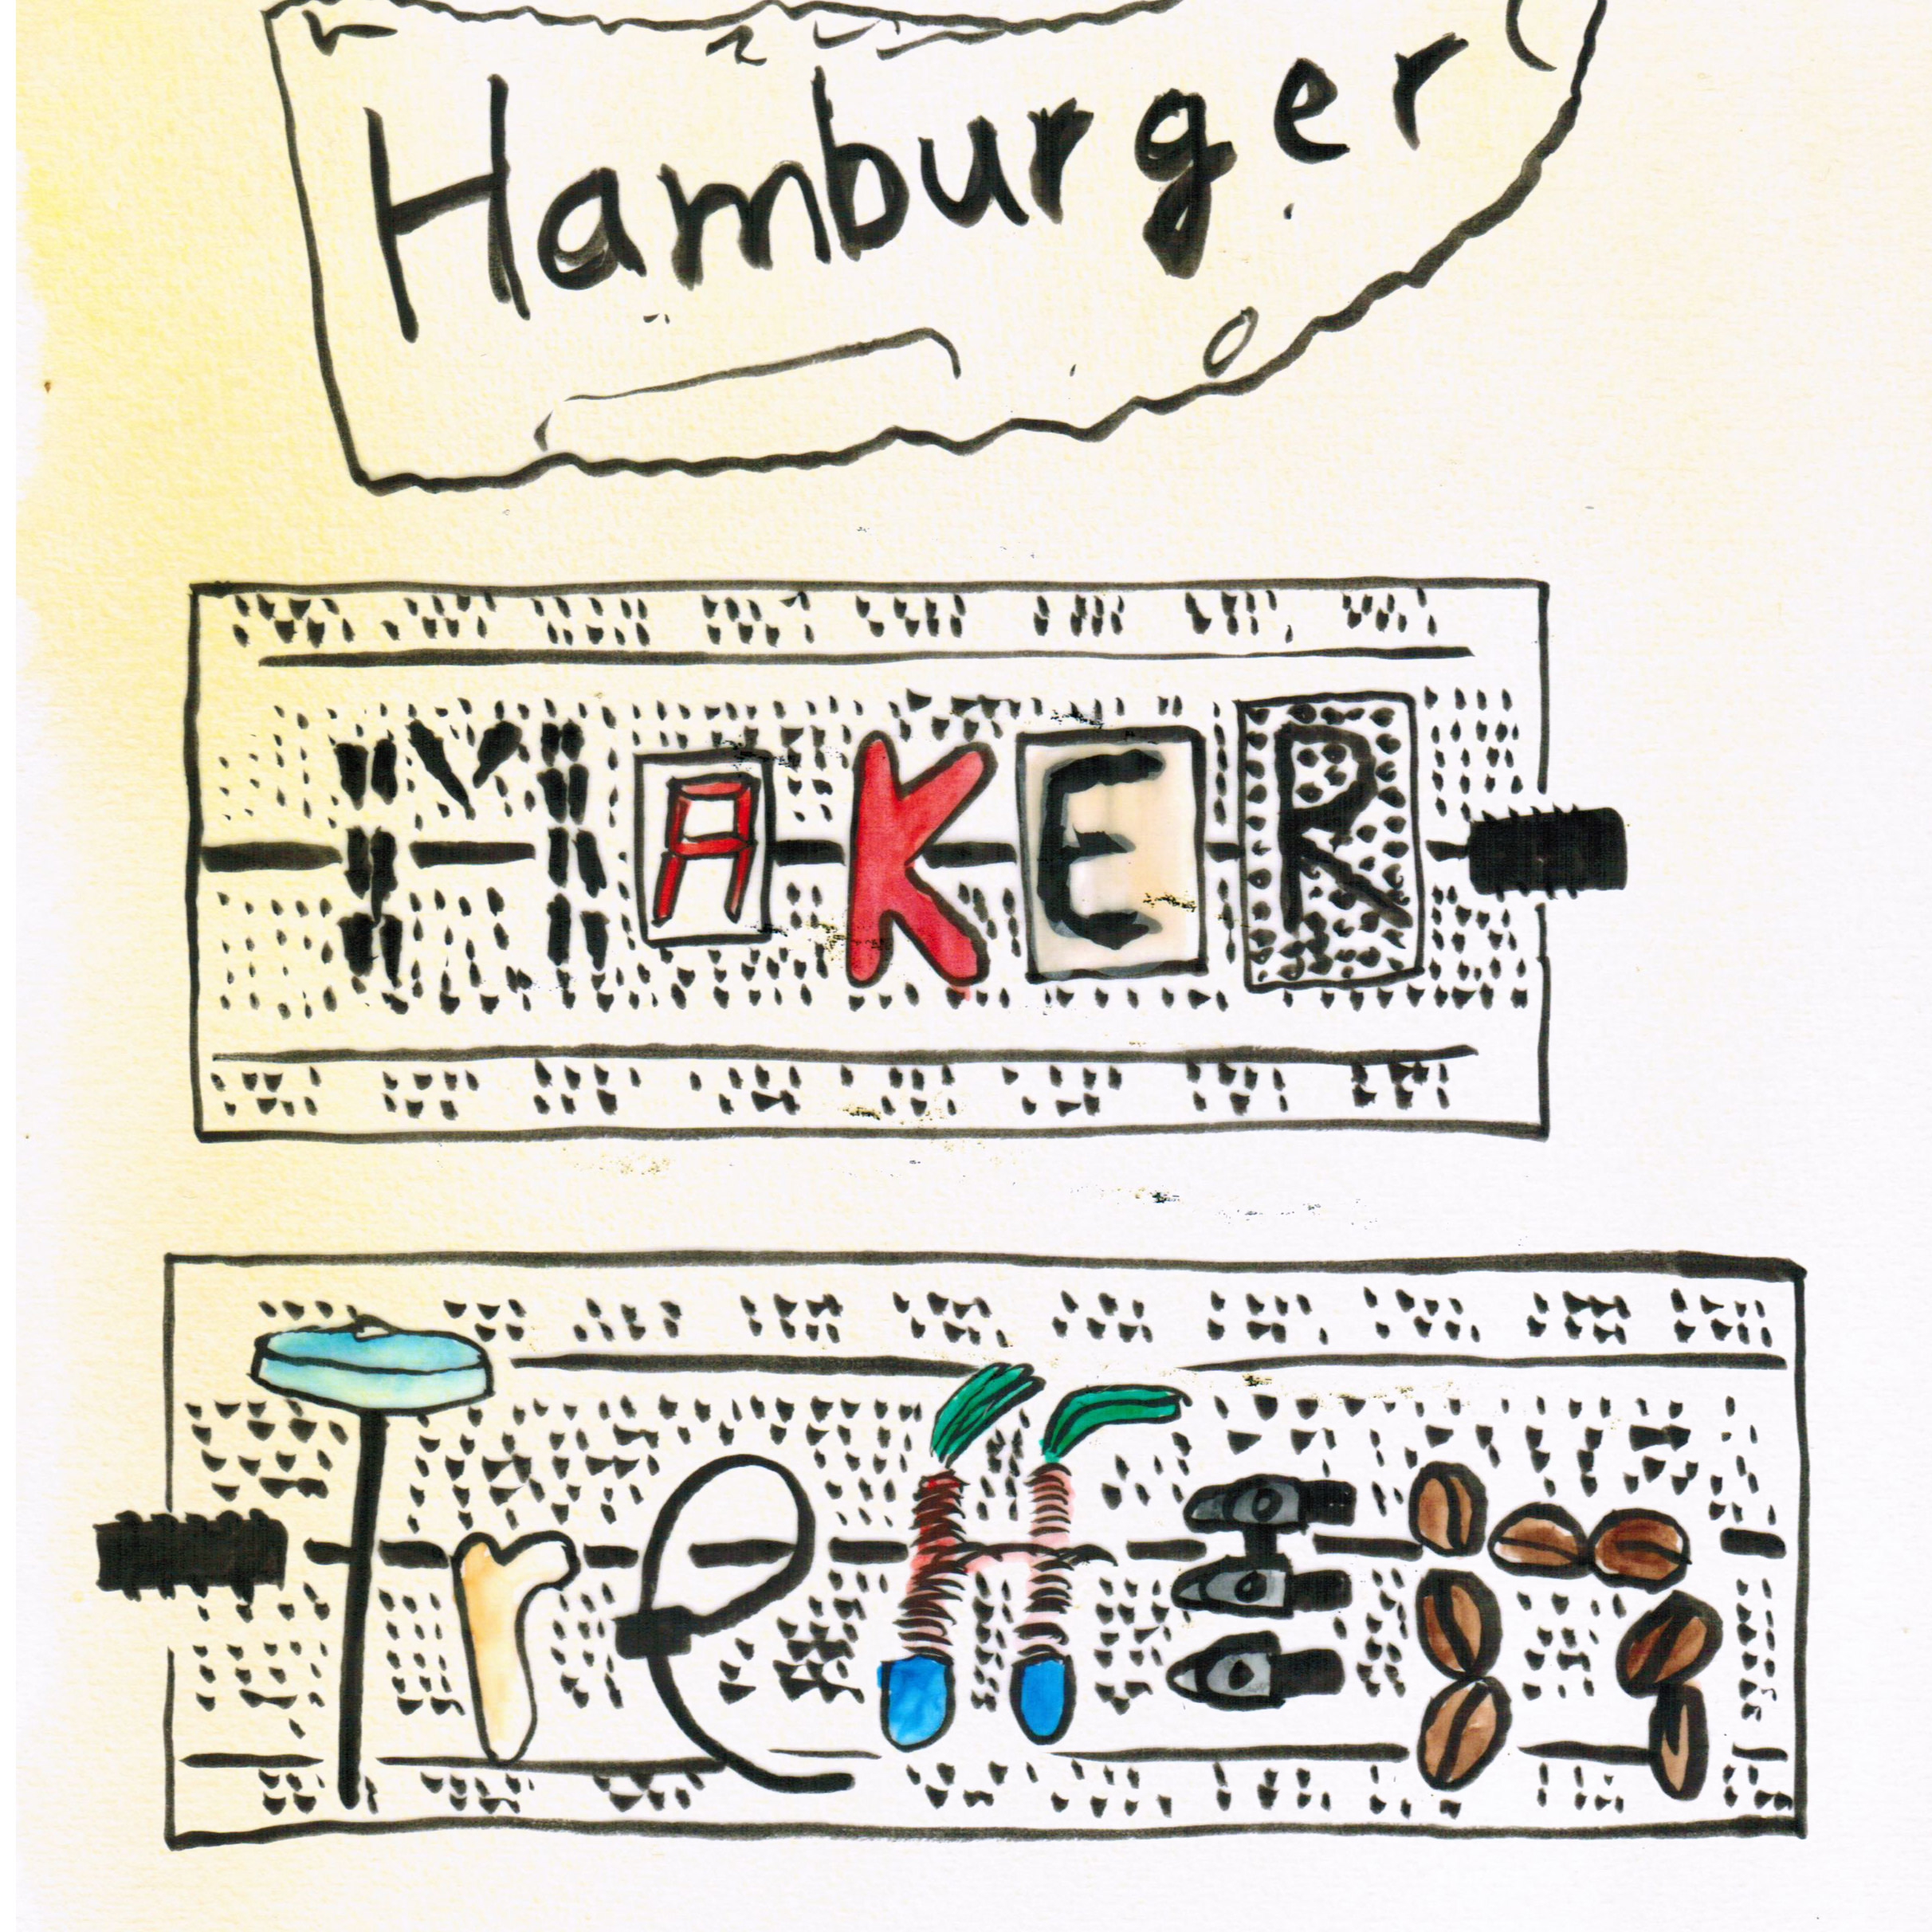 Hamburger
MAKER
Treffen